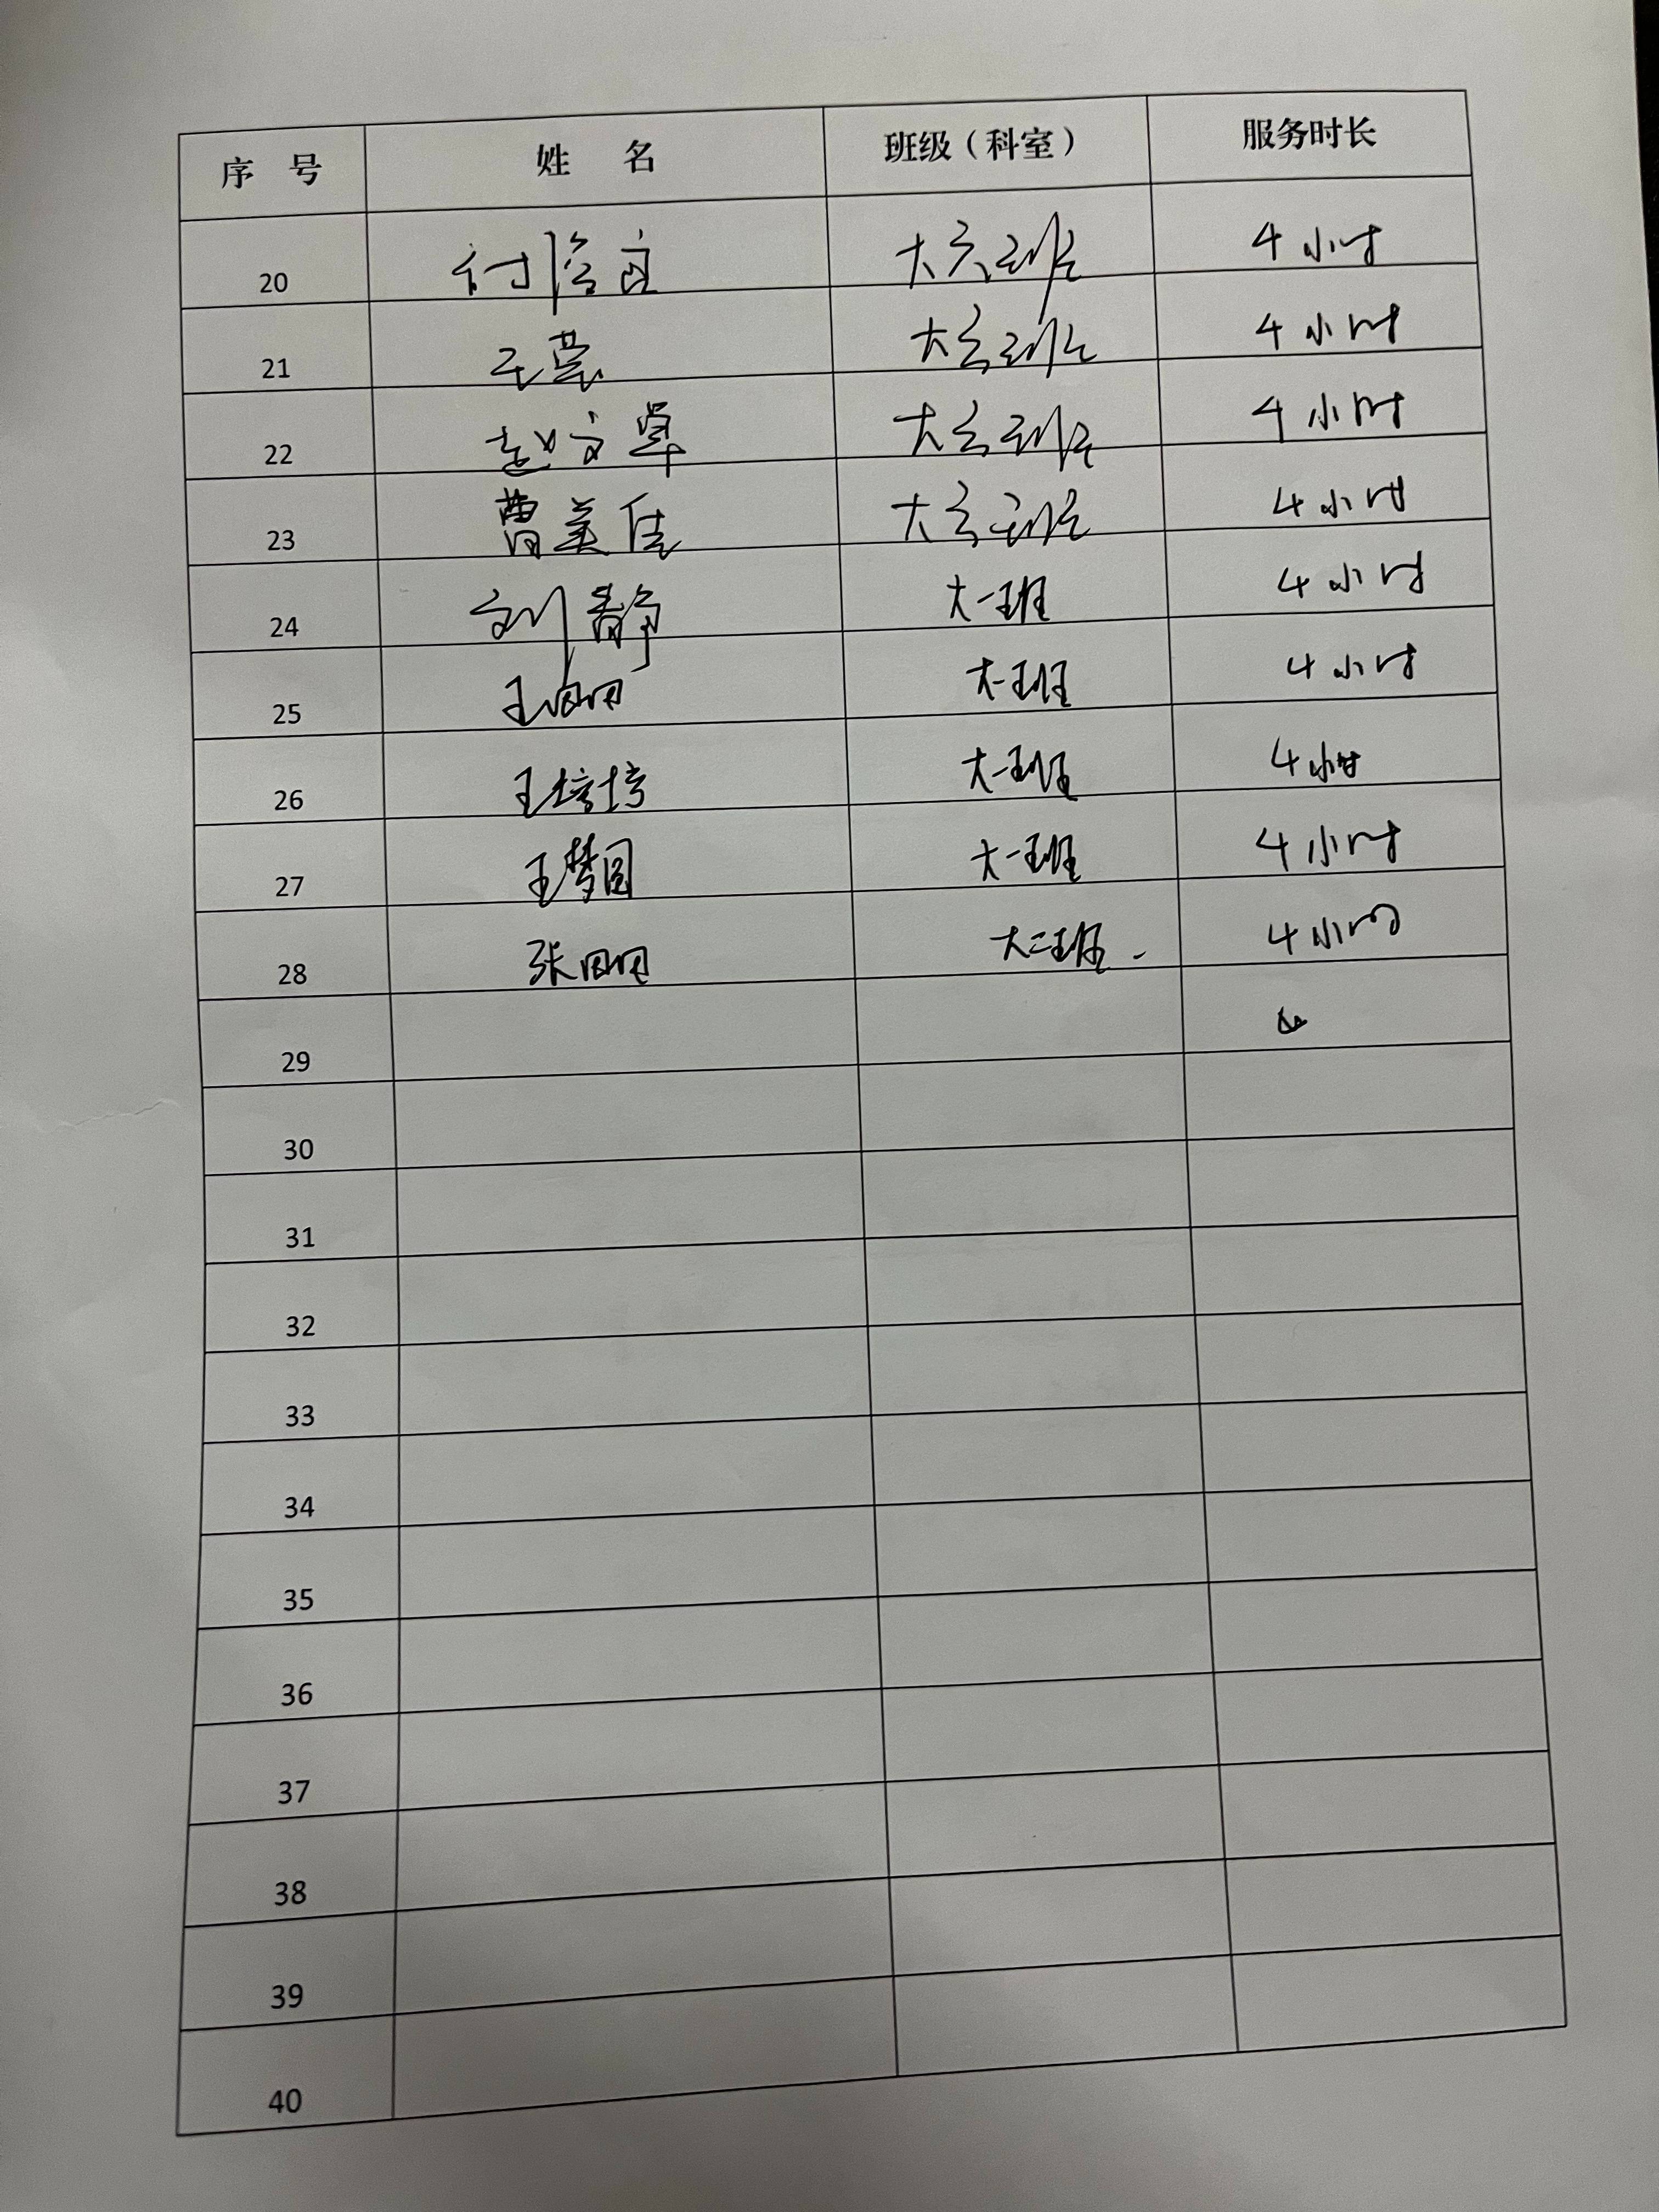 序 号 姓 名 班级（科室） 服务时长
20 付 大六班 4小时
21 王莹 大六班 4小时
22 赵文卓 大六班 4小时
23 曹美佳 大六班 4小时
24 刘静 大一班 4小时
25 王丽丽 大一班 4小时
26 王婷婷 大一班 4小时
27 王梦圆 大一班 4小时
28 张丽丽 大二班 4小时
29
30
31
32
33
34
35
36
37
38
39
40